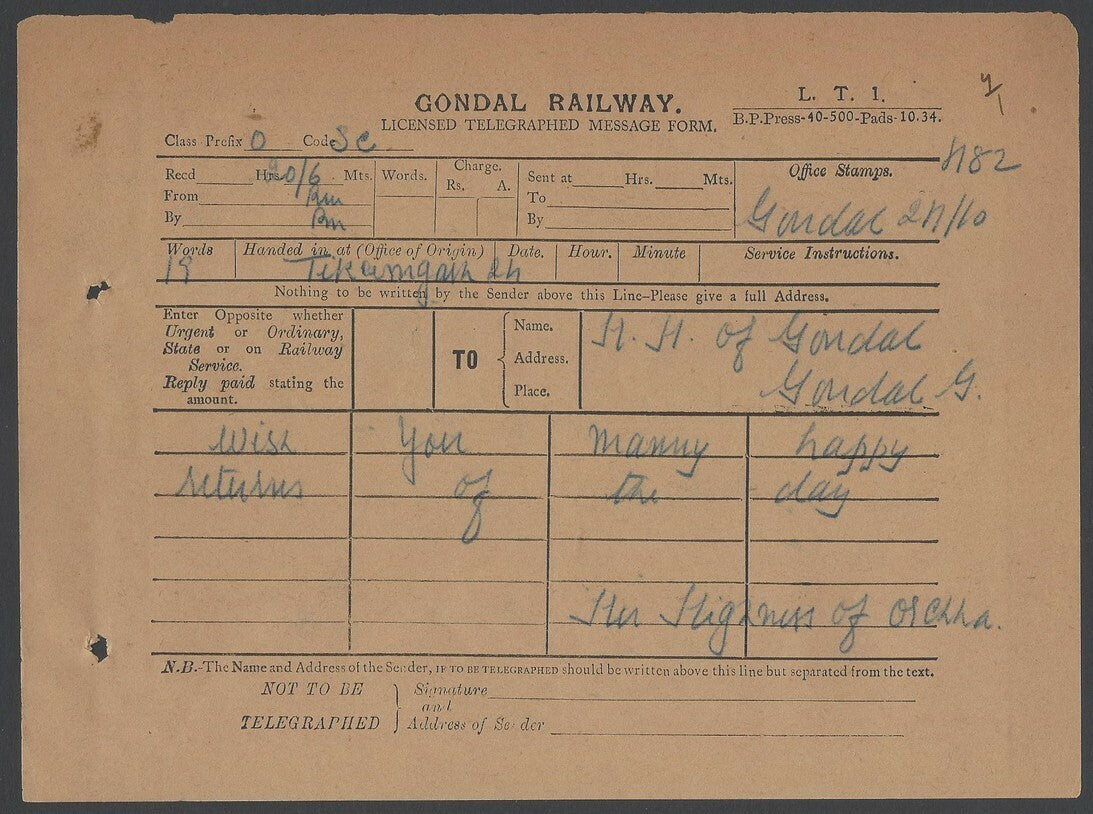 GONDAL RAILWAY.
LICENSED TELEGRAPHED MESSAGE FORM.
L. T. 1.
B.P.Press-40-500-Pads-10.34.
Class Prefix O Code SC
Recd Hrs. 20/6 Mts.
From
By
Words.
Charge.
Rs. A.
Sent at Hrs. Mts.
To
By
Office Stamps.
Gondal
Words Handed in at (Office of Origin) Date. Hour. Minute Service Instructions.
19 Tikamgarh
Nothing to be written by the Sender above this Line-Please give a full Address.
Enter Opposite whether
Urgent or Ordinary,
State or on Railway
Service.
Reply paid stating the
amount.
TO
Name.
Address.
Place.
H. H. of Gondal
Gondal G.
Wish You Manny happy
returns of the day
Her Highness of Orchha.
N.B.-The Name and Address of the Sender, IF TO BE TELEGRAPHED should be written above this line but separated from the text.
NOT TO BE
TELEGRAPHED
Signature
and
Address of Sender